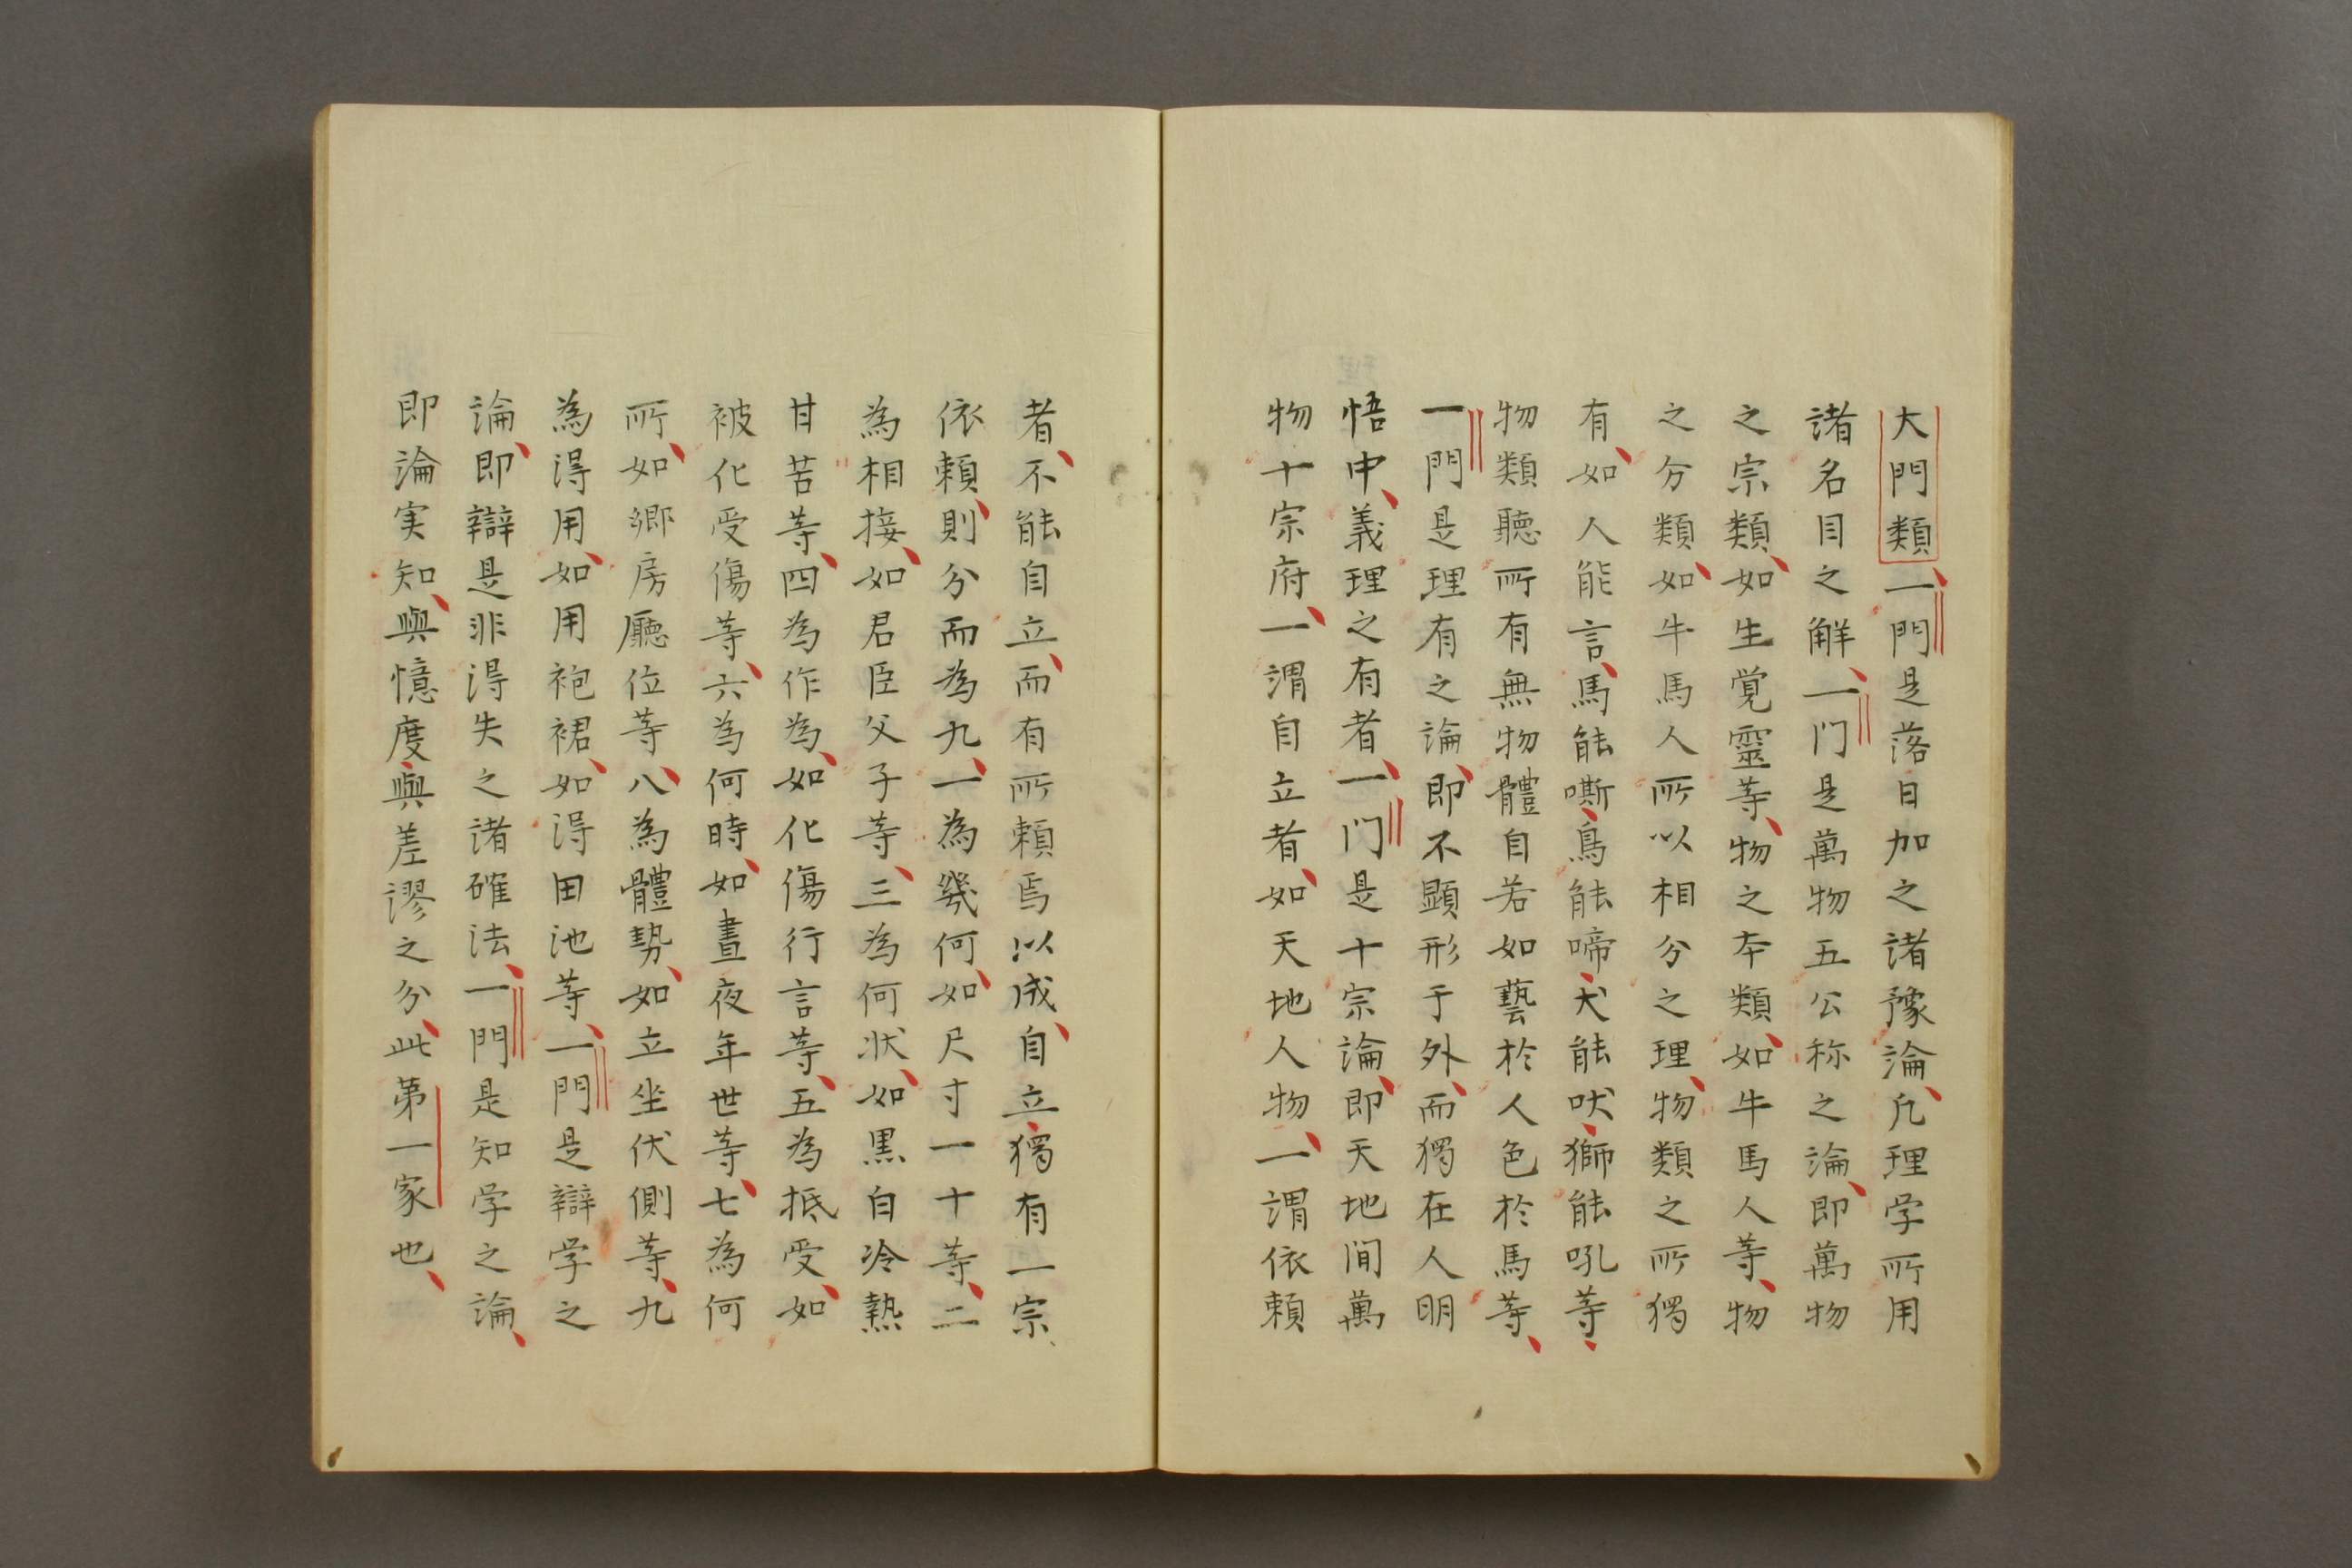 大門類、一門是落日加之諸豫論、凢理学所用
諸名目之解、一门是萬物五公称之論、即萬物
之宗類、如生覚靈等、物之本類、如牛馬人等、物
之分類、如牛馬人所以相分之理、物類之所獨
有、如人能言、馬能嘶、鳥能啼、犬能吠、獅能吼等、
物類聽所有無物體自若如藝於人色於馬等、
一門是理有之論、即不顕形于外、而獨在人明
悟中、義理之有者、一门是十宗論、即天地間萬
物十宗府、一謂自立者、如天地人物、一謂依頼
者、不能自立、而有所頼焉以成、自立、獨有一宗、
依頼、則分而為九、一為幾何、如尺寸一十等、二
為相接、如君臣父子等、三為何状、如黒白冷熱
甘苦等、四為作為、如化傷行言等、五為抵受、如
被化受傷等、六為何時、如晝夜年世等、七為何
所、如郷房廳位等、八為體勢、如立坐伏側等、九
為淂用、如用袍裙、如淂田池等、一門是辯学之
論、即辯是非淂失之諸確法、一門是知学之論、
即論実知、與憶度、與差謬之分、此第一家也、